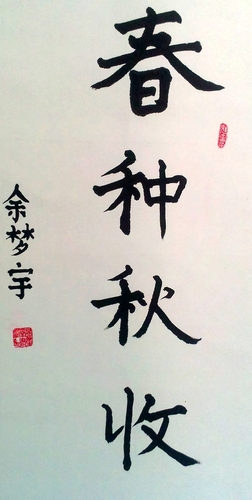 春种秋收
余梦宇